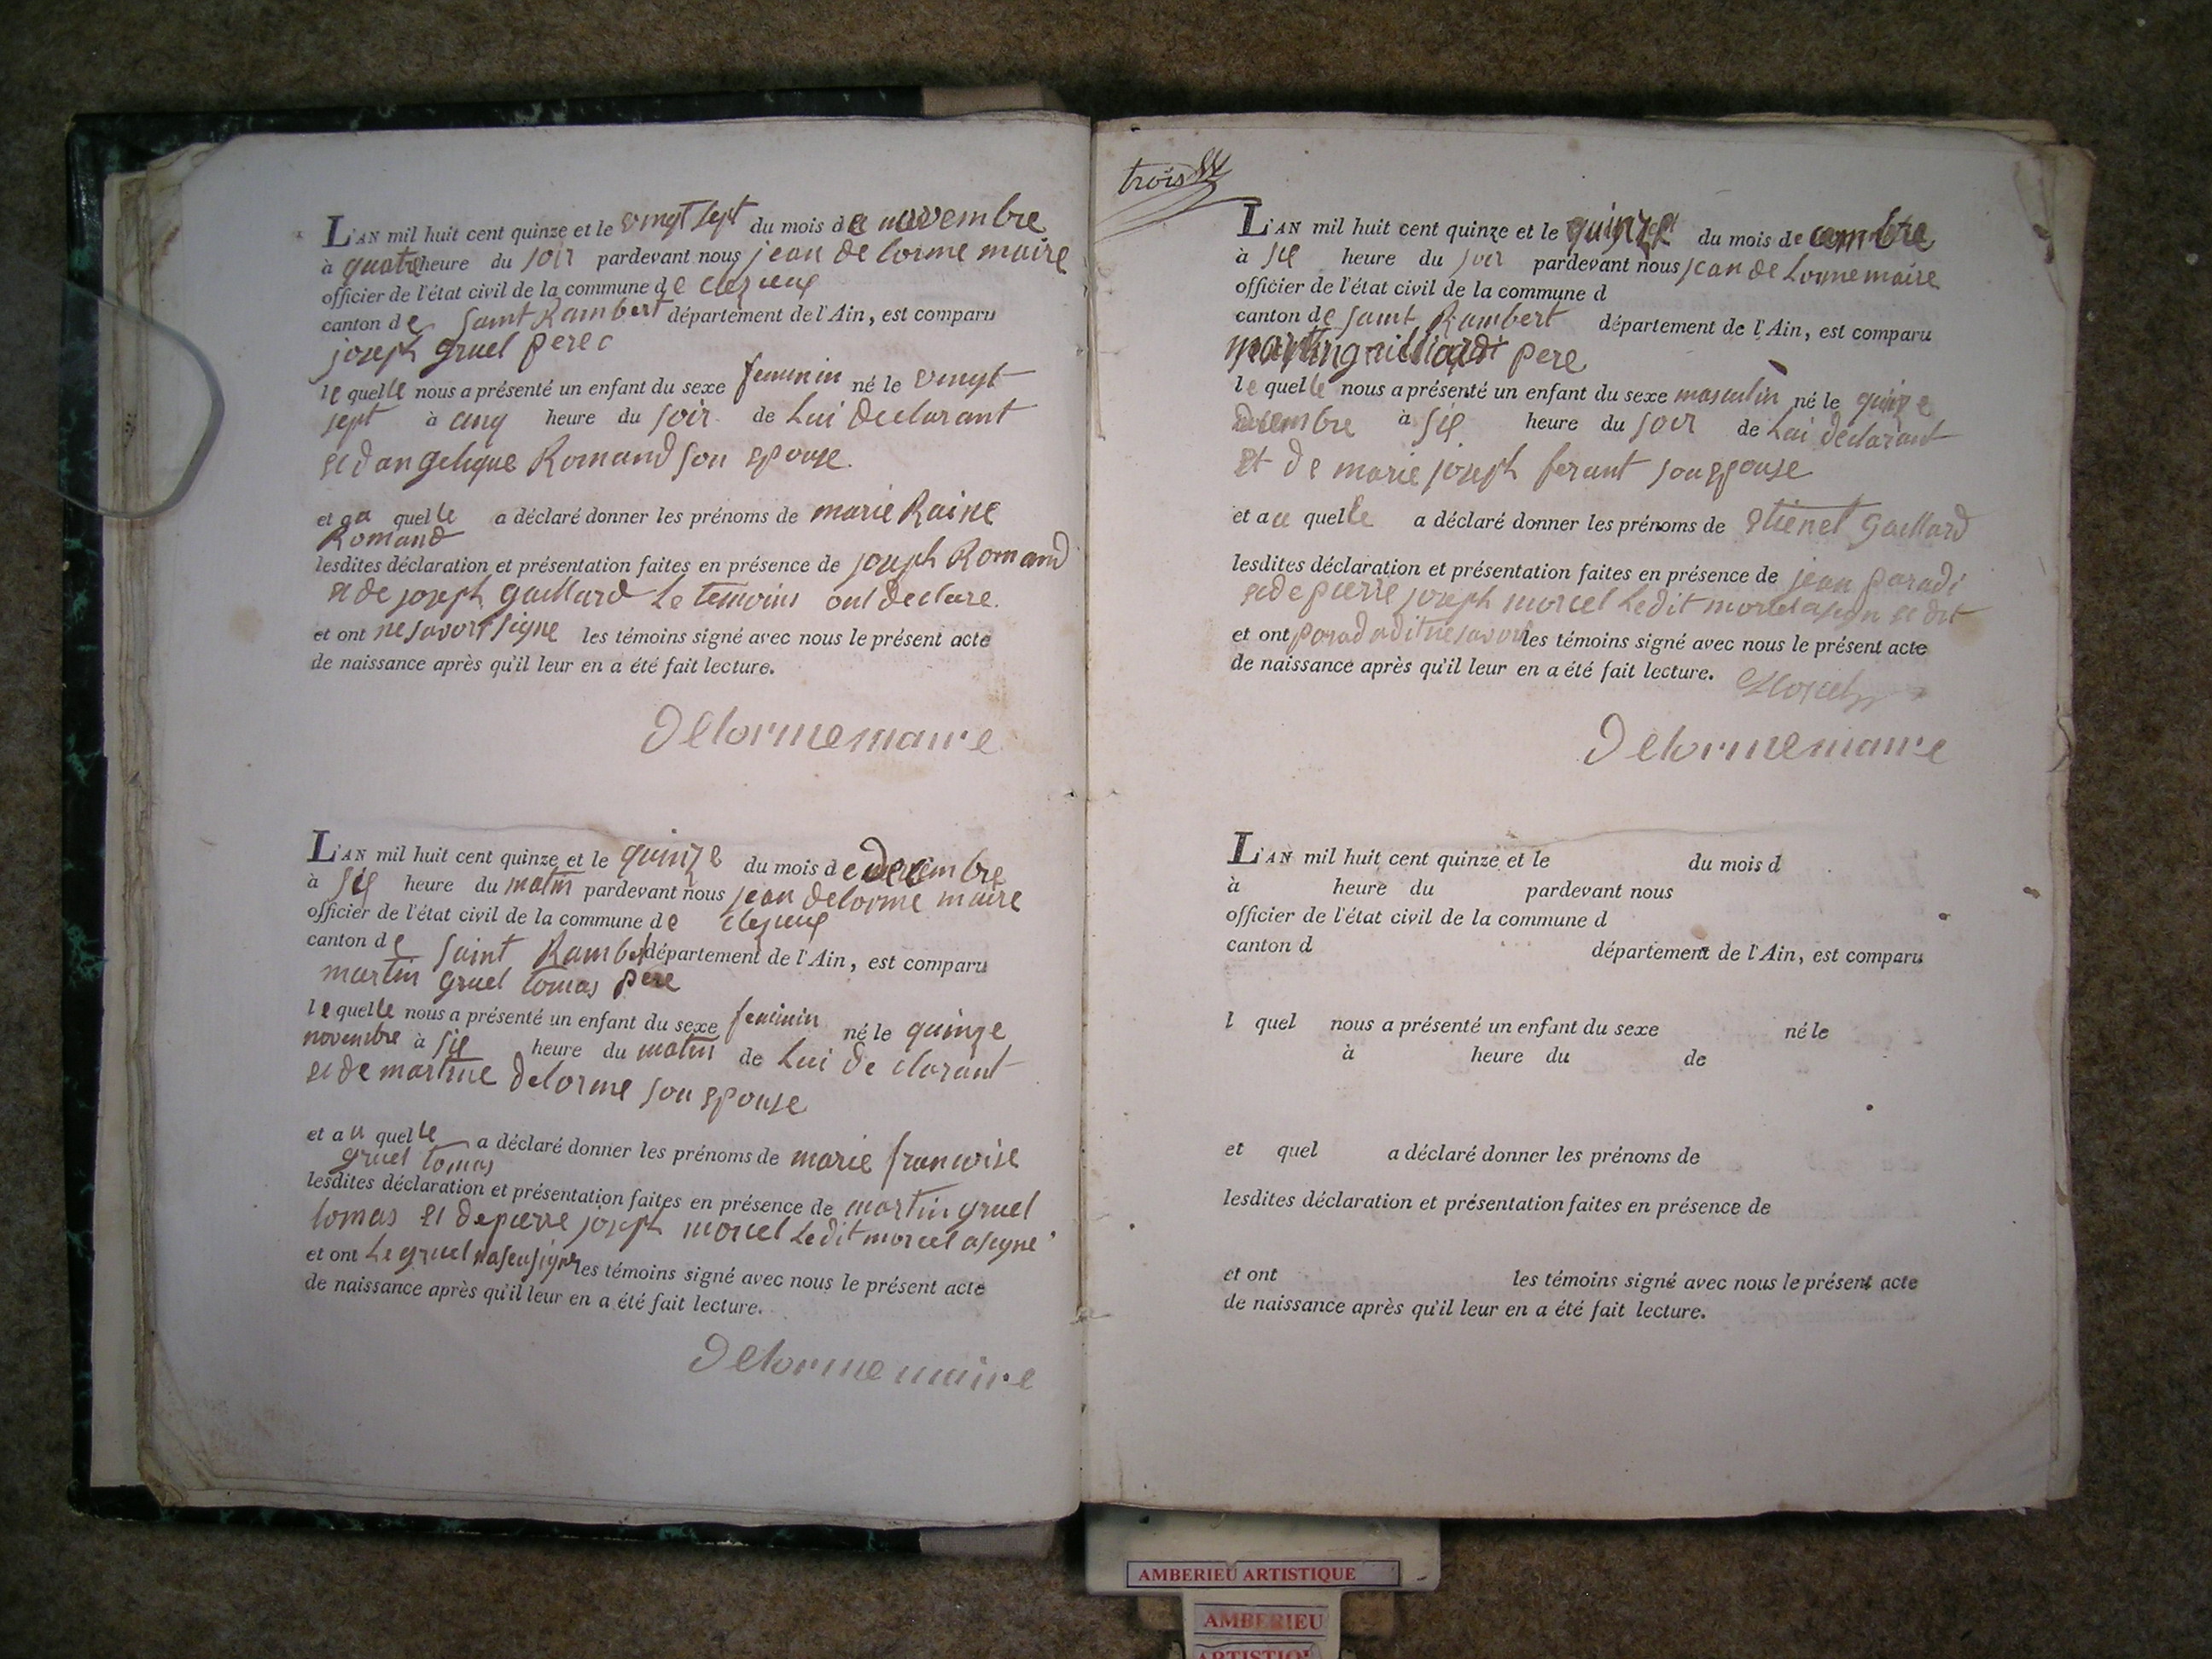 L'AN mil huit cent quinze et le vingt sept du mois de novembre
à quatre heure du soir pardevant nous jean de lorme maire
officier de l'état civil de la commune de clezieux
canton de saint Rambert département de l'Ain, est comparu
joseph gruel pere
le quelle nous a présenté un enfant du sexe feminin né le vingt
sept à cinq heure du soir de Lui declarant
et d angelique Romand son epouse.
et au quelle a déclaré donner les prénoms de marie Raine
Romand
lesdites déclaration et présentation faites en présence de joseph Romand
et de joseph gaillard Le temoins ont declare.
et ont ne savoir signe les témoins signé avec nous le présent acte
de naissance après qu'il leur en a été fait lecture.
Delorme maire
L'AN mil huit cent quinze et le quinze du mois de decembre
à sis heure du matin pardevant nous jean delorme maire
officier de l'état civil de la commune de clezieux
canton de saint Rambert département de l'Ain, est comparu
martin gruel tomas pere
le quelle nous a présenté un enfant du sexe feminin né le quinze
novembre à sis heure du matin de Lui de clarant
et de martine delorme son epouse
et au quelle a déclaré donner les prénoms de marie francoise
gruel tomas
lesdites déclaration et présentation faites en présence de martin gruel
tomas et de pierre joseph morcel Ledit morcel asigne
et ont Le gruel les témoins signé avec nous le présent acte
de naissance après qu'il leur en a été fait lecture.
Delorme maire
trois
L'AN mil huit cent quinze et le quinze du mois de
à sis heure du soir pardevant nous jean de Lorme maire
officier de l'état civil de la commune d
canton de saint Rambert département de l'Ain, est comparu
martin gailliard pere
le quelle nous a présenté un enfant du sexe masculin né le quinze
desembre à sis heure du soir de Lui declarant
et de marie joseph ferant son epouse
et au quelle a déclaré donner les prénoms de etienet gaillard
lesdites déclaration et présentation faites en présence de jean paradi
et de pierre joseph morcel Ledit morcel asign et dit
et ont les témoins signé avec nous le présent acte
de naissance après qu'il leur en a été fait lecture.
Morcel
Delorme maire
L'AN mil huit cent quinze et le du mois d
à heure du pardevant nous
officier de l'état civil de la commune d
canton d département de l'Ain, est comparu
l quel nous a présenté un enfant du sexe né le
à heure du de
et quel a déclaré donner les prénoms de
lesdites déclaration et présentation faites en présence de
et ont les témoins signé avec nous le présent acte
de naissance après qu'il leur en a été fait lecture.
AMBERIEU ARTISTIQUE
AMBERIEU
ARTISTIQU